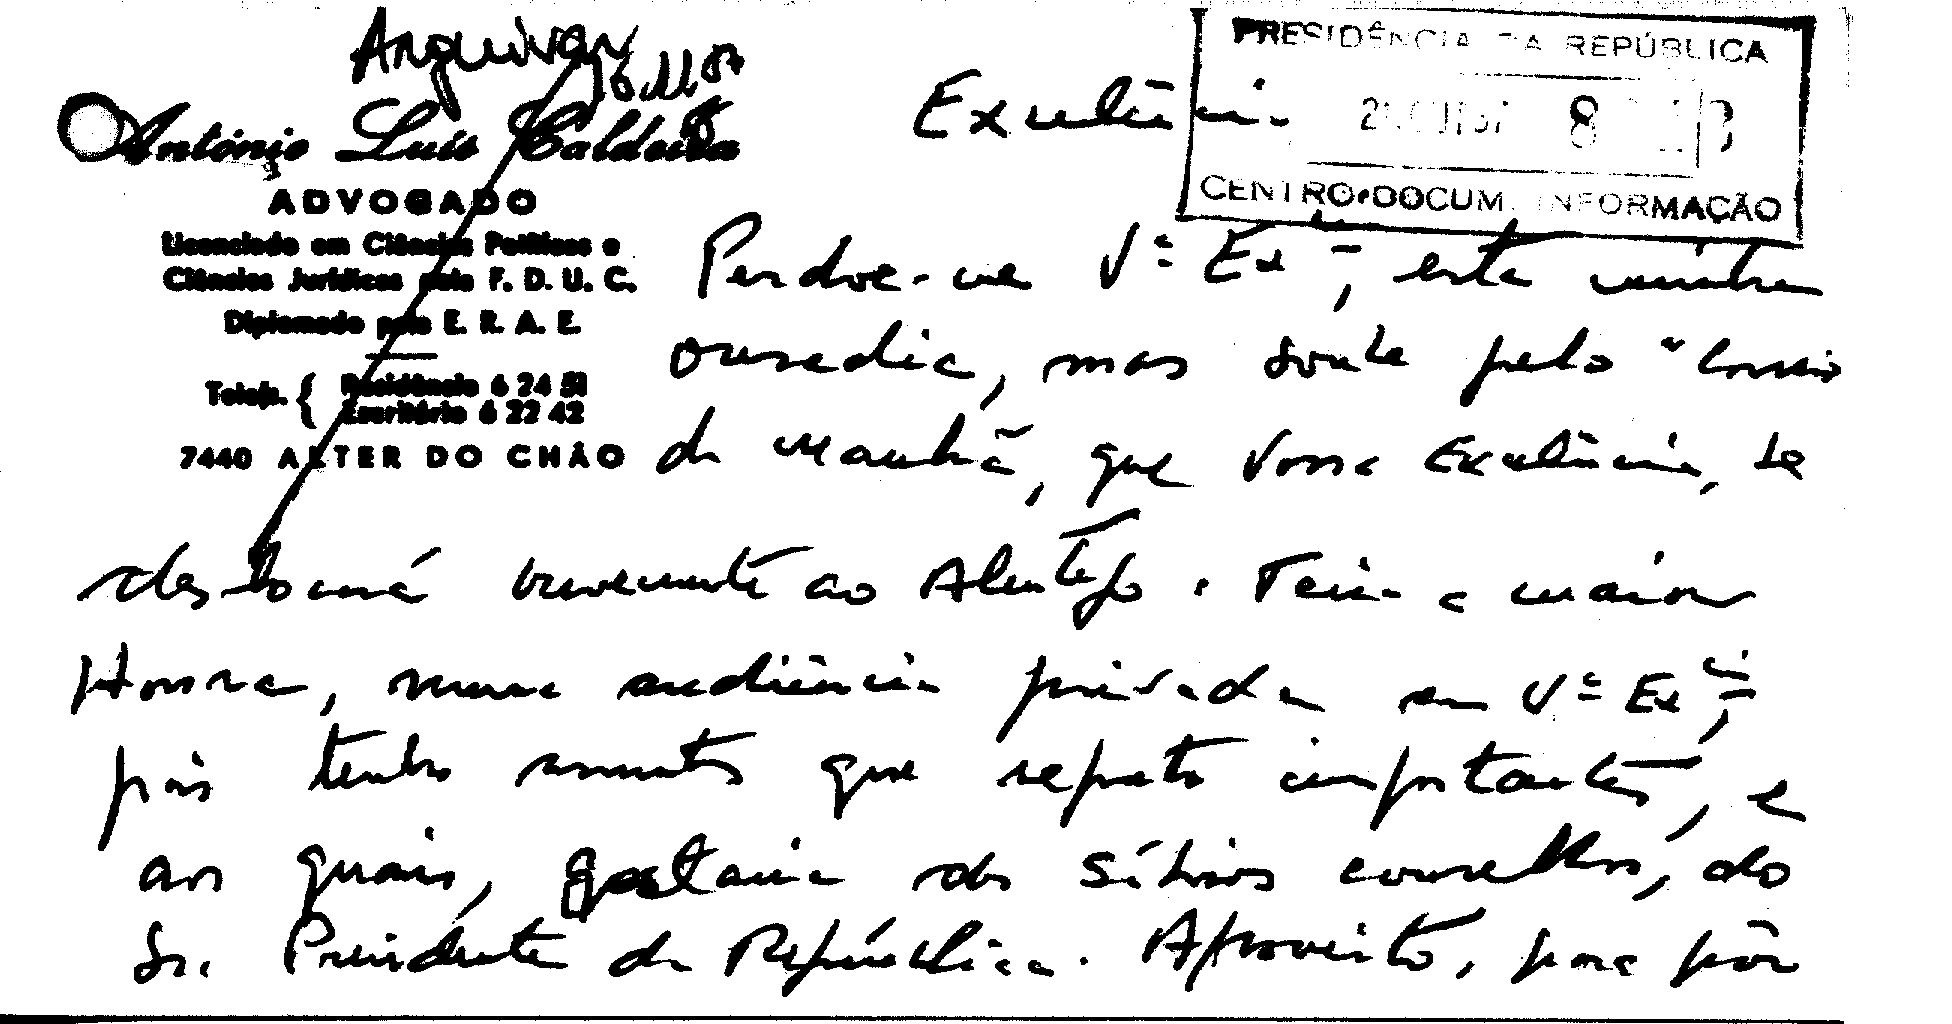 Arquivar
16.11.87
António Luís Caldeira
ADVOGADO
Licenciado em Ciências Políticas e
Ciências Jurídicas pela F. D. U. C.
Diplomado pela E. R. A. E.
Telefs. { Residência 6 24 51
Escritório 6 22 42
7440 ALTER DO CHÃO
PRESIDÊNCIA DA REPÚBLICA
CENTRO DOCUM. INFORMAÇÃO
Excelência
Perdoe-me Vª Exª, esta minha
ousadia, mas soube pelo "Correio
da Manhã, que Vossa Excelência, se
deslocará brevemente ao Alentejo. Teria a maior
Honra, numa audiência privada com Vª Exª,
pois tenho assuntos que reputo importantes, e
aos quais, gostaria dos sábios conselhos, do
Sr. Presidente da República. Aproveito, para pôr